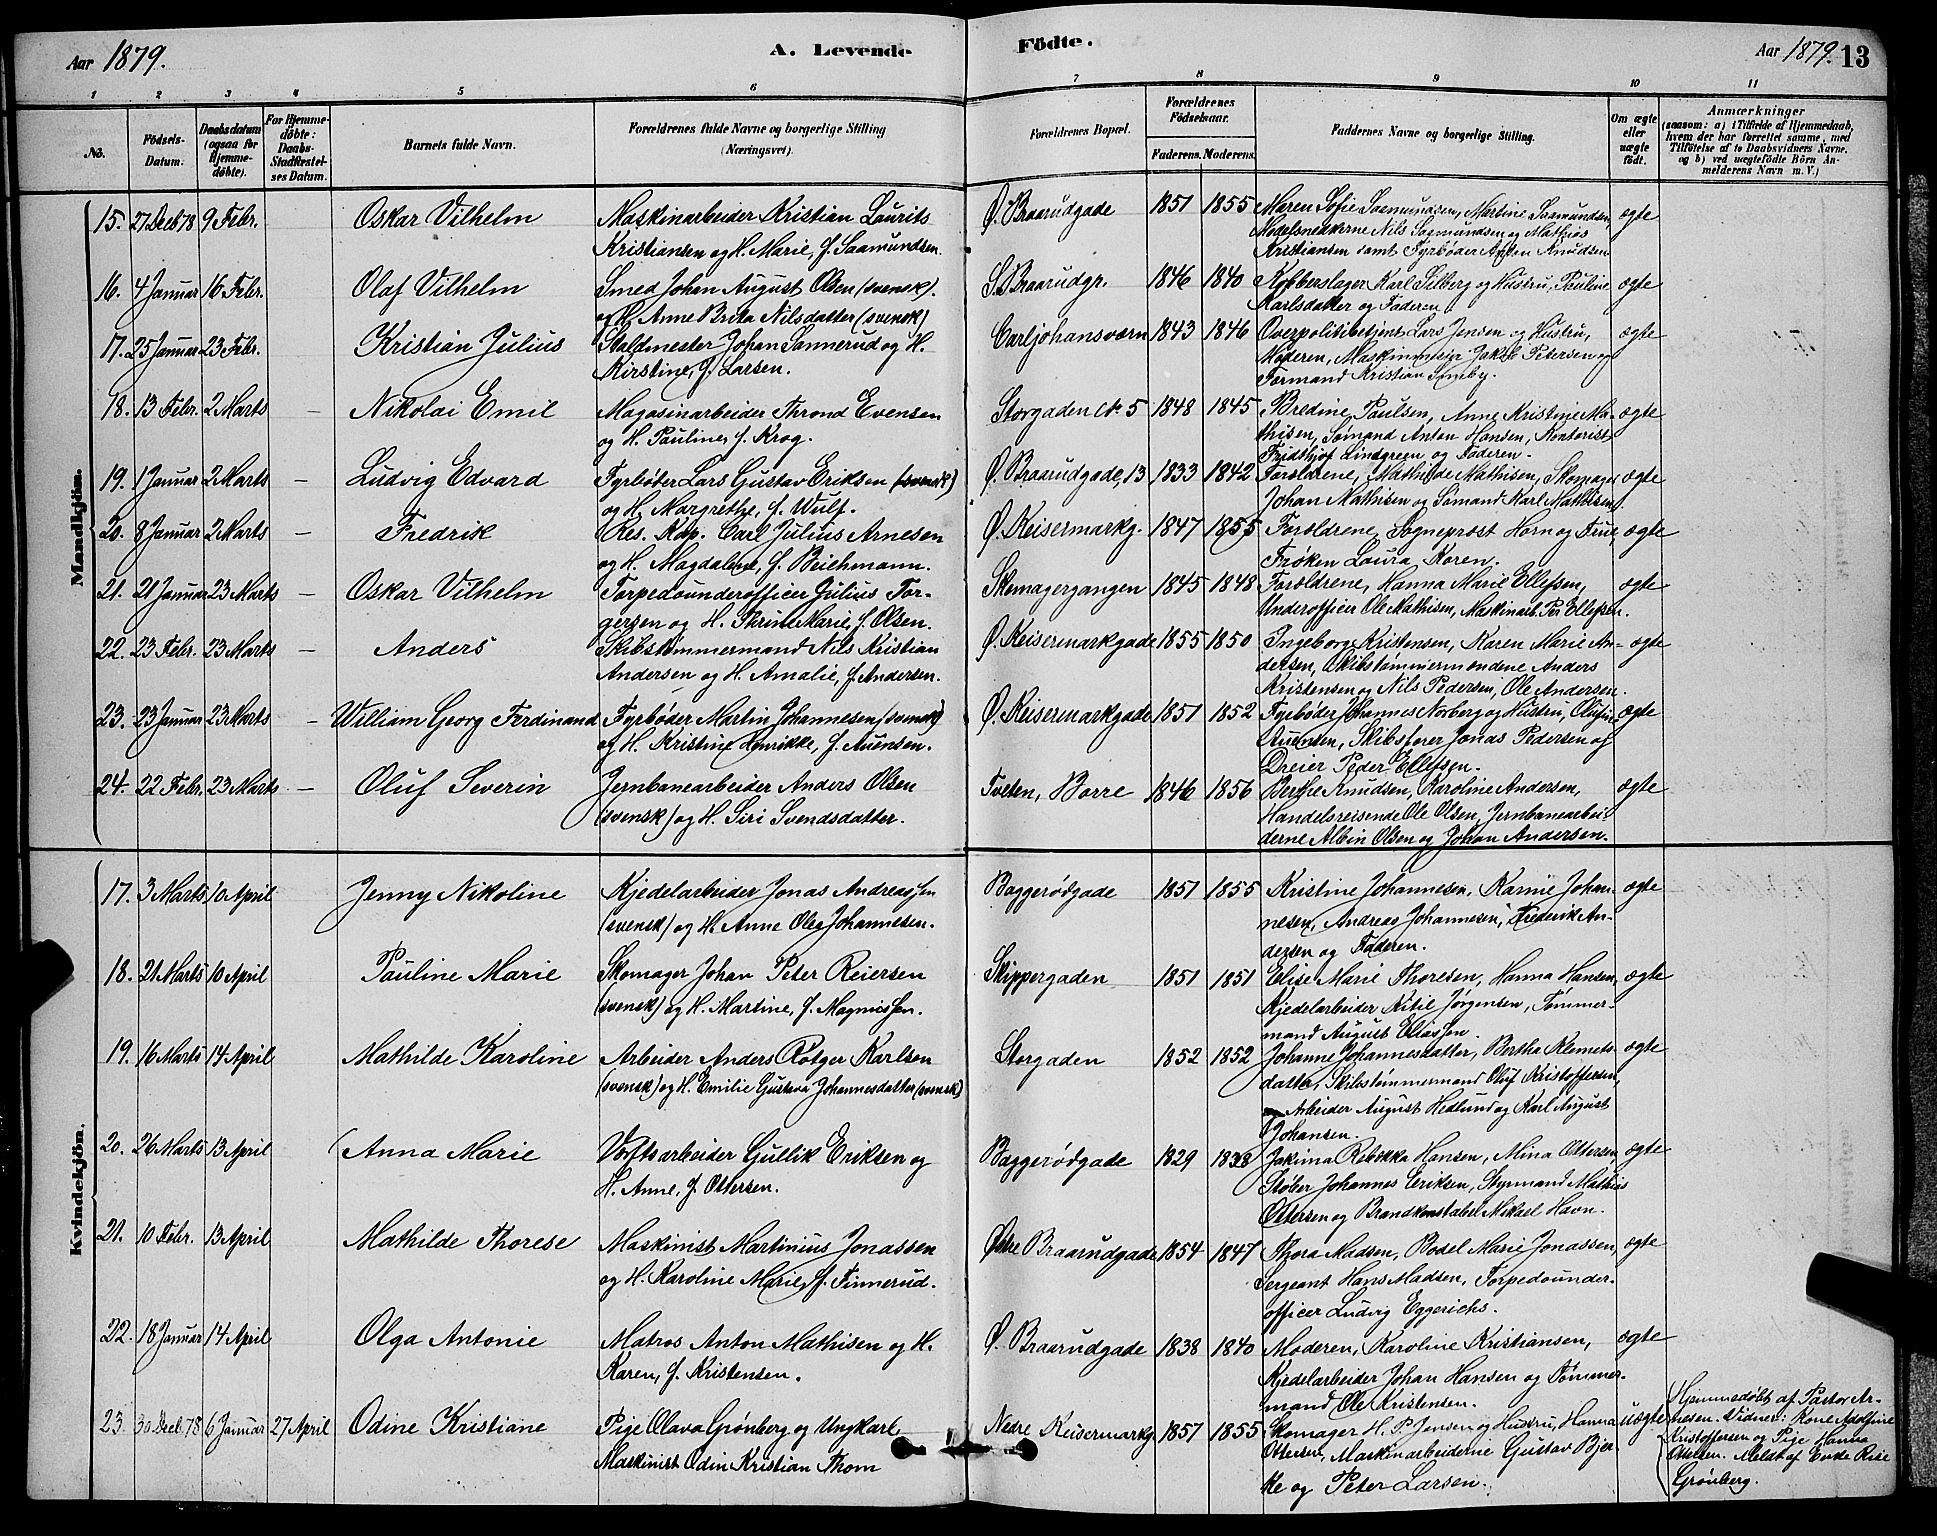 Aar 1879.
A. Levende
Födte.
Aar 1879. 13
1 2 3 4 5 6 7 8 9 10 11
No.
Födsels-Datum.
Daabsdatum (ogsaa for Hjemme-döbte).
For Hjemme-döbte: Daabs-Stadfæstel-ses Datum.
Barnets fulde Navn.
Forældrenes fulde Navne og borgerlige Stilling (Næringsvei).
Forældrenes Bopæl.
Forældrenes Födselsaar.
Faderens. Moderens.
Faddernes Navne og borgerlige Stilling.
Om ægte eller uægte födt.
Anmærkninger
(saasom: a) i Tilfælde af Hjemmedaab,
hvem der har forrettet samme, med
Tilföielse af to Daabsvidners Navne,
og b) ved uægtefödte Börn An-
melderens Navn m. V.)
Mandkjön.
15. 27 Decb 78 9 Febr. Oskar Vilhelm Maskinarbeider Kristian Laurits Ø. Braarudgade 1851 1855 Maren Sofie Saamundsen, Martine Saamundsen, ægte
Kristiansen og H. Marie, f. Saamundsen. Modelsnedkerne Nils Saamundsen og Mathias
Kristiansen samt Fyrbøder Anton Knudsen
16. 4 Januar 16 Febr. Olaf Vilhelm Smed Johan August Olsen (svensk). S. Braarudgr. 1846 1840 Kobberslager Karl Silberg og Hustru, Pauline ægte
og H. Anne Brita Nilsdatter (svensk) Karlsdatter og Faderen.
17. 25 Januar 23 Febr. Kristian Julius Staldmester Johan Sannerud og H. Carljohansværn 1843 1846 Overpolitibetjent Lars Jensen og Hustru, ægte
Kirstine, f. Larsen. Moderen, Maskinmester Jakob Petersen og
Formand Kristian Smeby.
18. 13 Febr. 2 Marts – Nikolai Emil Magasinarbeider Thrond Evensen Storgaden № 5 1848 1845 Bredine Paulsen, Anne Kristine Ma- ægte
og H. Pauline, f. Krog. thisen, Sømand Anton Hansen, Kontorist
Fridthjof Lindgreen og Faderen.
19. 1 Januar 2 Marts – Ludvig Edvard Fyrbøter Lars Gustav Eriksen (svensk) Ø. Braarudgade, 13 1833 1842 Forældrene, Mathilde Mathisen, Skomager ægte
og H. Margrethe, f. Wulf. Johan Mathisen og Sømand Karl Mathisen.
20. 8 Januar 2 Marts – Fredrik Res. Kap. Carl Julius Arnesen Ø. Keisermarkg. 1847 1855 Forældrene, Sogneprost Horn og Frue, ægte
og H. Magdalene, f. Beichmann. Frøken Laura Koren.
21. 21 Januar 23 Marts – Oskar Vilhelm Torpedounderofficer Julius Tor- Skomagergangen 1845 1848 Forældrene, Hanna Marie Ellefsen, ægte
gersen og H. Thrine Marie, f. Olsen. Underofficer Ole Mathisen, Maskinarb. Per Ellefsen.
22. 23 Febr. 23 Marts – Anders Skibstømmermand Nils Kristian Ø. Keisermarkgade 1855 1850 Ingeborg Kristensen, Karen Marie An- ægte
Andersen og H. Amalie, f. Andersen. dersen, Skibstømmermændene Anders
Kristensen og Nils Pedersen, Ole Andersen.
23. 23 Januar 23 Marts – William Georg Ferdinand Fyrbøder Martin Johannesen (svensk) Ø. Keisermarkgade 1851 1852 Fyrbøder Johannes Norberg og Hustru, Olufine ægte
og H. Kristine Henrikke, f. Auensen. Auensen, Skibsfører Jonas Pedersen og
Dreier Peder Ellefsen.
24. 22 Febr. 23 Marts – Oluf Severin Jernbanearbeider Anders Olsen Tveten, Borre 1846 1856 Berthe Knudsen, Karoline Andersen, ægte
(svensk) og H. Siri Svendsdatter. Handelsreisende Ole Olsen, Jernbanearbei-
derne Albin Olsen og Johan Andersen.
Kvindekjön.
17. 3 Marts 10 April Jenny Nikoline Kjedelarbeider Jonas Andreasen Baggerødgade 1851 1855 Kristine Johannesen, Karine Johan- ægte
(svensk) og H. Anne Olea Johannesen. nesen, Andreas Johannesen, Frederik An-
dersen og Faderen.
18. 21 Marts 10 April Pauline Marie Skomager Johan Peter Reiersen Skippergaden 1851 1851 Elise Marie Thoresen, Hanna Hansen, ægte
(svensk) og H. Martine, f. Magnussen. Kjedelarbeider Kitil Jørgensen, Tømmer-
mand August Eliassen.
19. 16 Marts 14 April Mathilde Karoline Arbeider Anders Rötger Karlsen Storgaden 1852 1852 Johanne Johannesdatter, Bertha Klemets- ægte
(svensk) og H. Emilie Gustava Johannesdatter (svensk) datter, Skibstømmermand Oluf Kristoffersen,
Arbeider August Hedlund og Karl August
Johansen.
20. 26 Marts 13 April Anna Marie Værftsarbeider Gullik Eriksen og Baggerødgade 1829 1838 Jakima Rebekka Hansen, Mina Ottersen, ægte
H. Anne, f. Ottersen. Støber Johannes Eriksen, Styrmand Mathias
Ottersen og Brandkonstabel Mikael Havn.
21. 10 Febr. 13 April Mathilde Thorese Maskinist Martinius Jonassen Østre Braarudgade 1854 1847 Thora Madsen, Bodel Marie Jonassen, ægte
og H. Karoline Marie, f. Finnerud. Sergeant Hans Madsen, Torpedounder-
officer Ludvig Eggerichs.
22. 18 Januar 14 April Olga Antonie Matros Anton Mathisen og H. Ø. Braarudgade 1838 1840 Moderen, Karoline Kristiansen, ægte
Karen, f. Kristensen. Kjedelarbeider Johan Hansen og Tømmer-
mand Ole Kristensen.
23. 30 Decb 78 6 Januar 27 April Odine Kristiane Pige Olava Grønberg og Ungkarl Nedre Keisermarkg. 1857 1855 Skomager H. P. Jensen og Hustru, Hanna uægte
Maskinist Odin Kristian Thom Ottersen, Maskinarbeiderne Gustav Bjer-
ke og Peter Larsen.
Hjemmedøbt af Pastor Ar-
nesen. Vidner: Kone Adolfine
Kristoffersen og Pige Hanna
Ottersen. Meldt af Enke Rise
Grønberg.